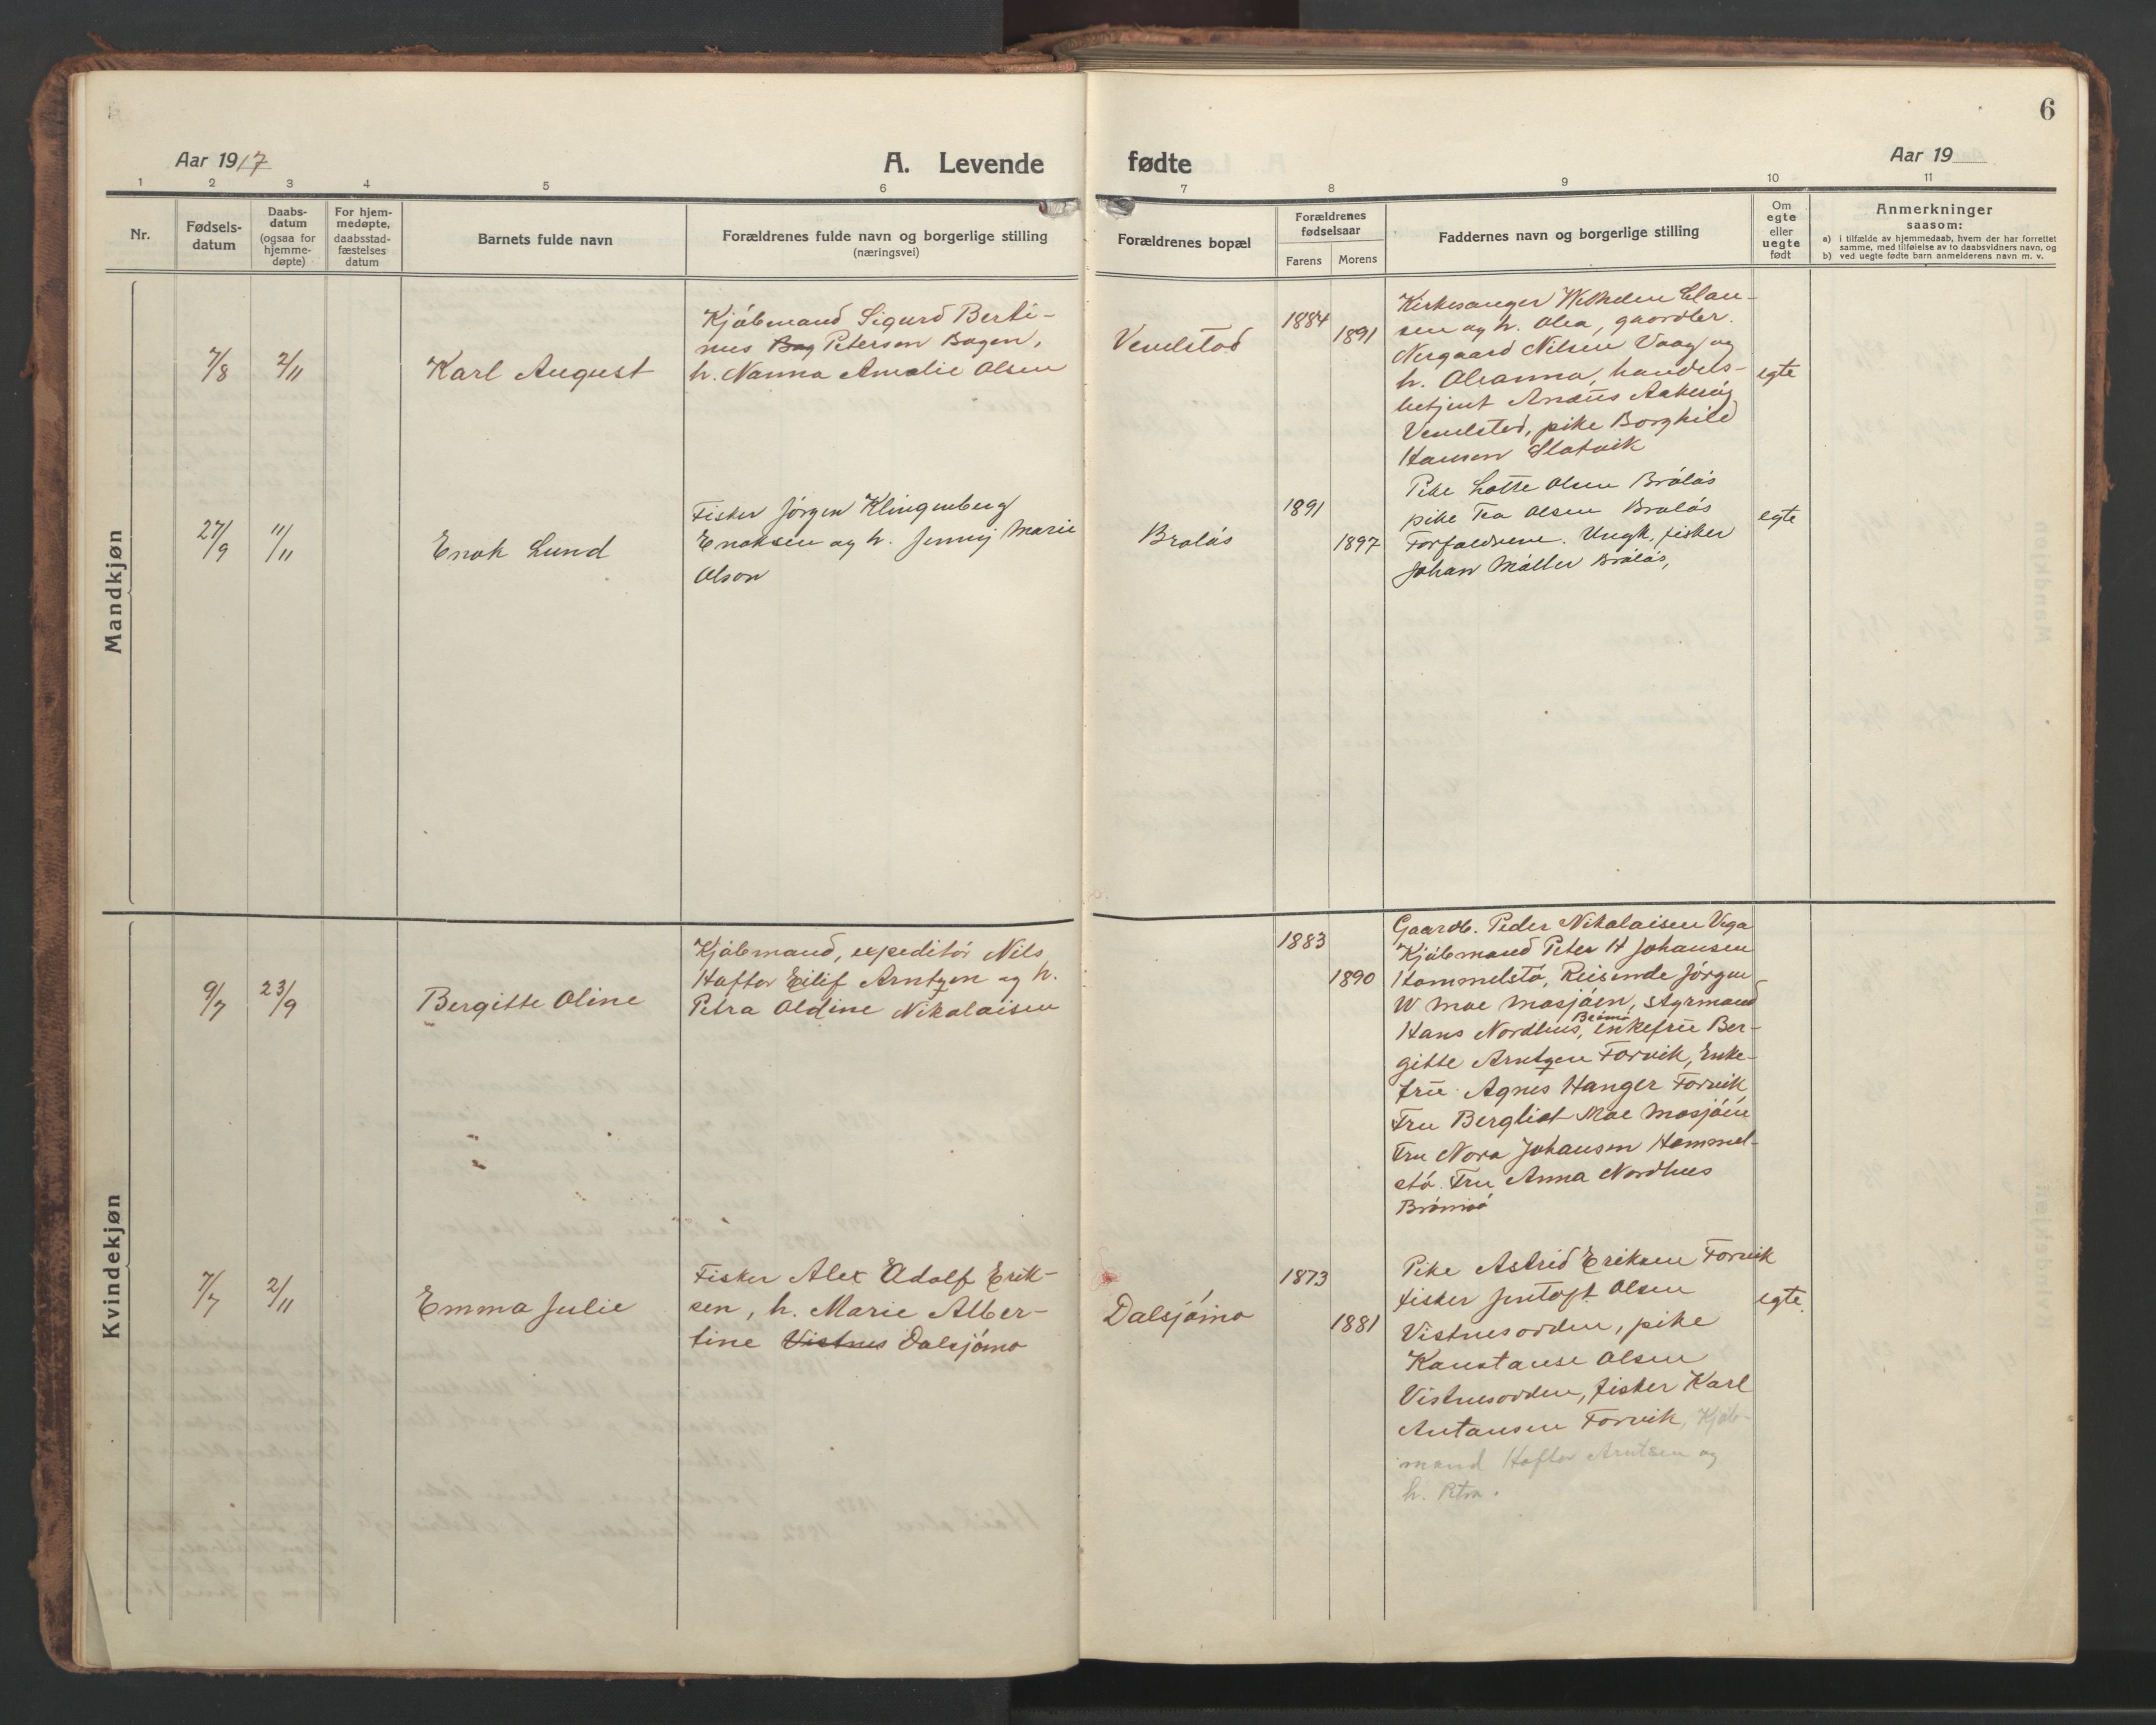 6
Aar 1917
A. Levende fødte
Aar 19
1 2 3 4 5 6 7 8 9 10 11
Nr.
Fødsels-
datum
Daabs-
datum
(ogsaa for
hjemme-
døpte)
For hjem-
medøpte,
daabsstad-
fæstelses
datum
Barnets fulde navn
Forældrenes fulde navn og borgerlige stilling
(næringsvei)
Forældrenes bopæl
Forældrenes
fødselsaar
Farens Morens
Faddernes navn og borgerlige stilling
Om
egte
eller
uegte
født
Anmerkninger
saasom:
a) i tilfælde av hjemmedaab, hvem der har forrettet
samme, med tilføielse av to daabsvidners navn, og
b) ved uegte fødte barn anmelderens navn m. v.
Mandkjøn
7/8 2/11
Karl August
Kjøbmand Sigurd Berti-
nus Bag Peterson Bogen,
h. Nanna Amalie Olsen
Vevelstad
1884
1891
Kirkesanger Wilhelm Clau-
sen og h. Olea, gaardbr.
Nergaard Nilsen Vaag og
h. Oleanna, handels-
betjent
Vevelsted, pike Borghild
Hansen Slotvik
egte
27/9 11/11
Enok Lund
Fisker Jørgen Klingenberg
Enoksen og h. Jenny Marie
Olson
Bralås
1891
1897
Pike Lotte Olsen Brålås
pike Tea Olsen Bralås
Forældrene. Ungk. fisker
Johan Møller Brålås,
egte
Kvindekjøn
9/7 23/9
Bergitte Oline
Kjøbmand, expeditør Nils
Haftor Eilif Arntzen og h.
Petra Oldine Nikolaisen
1883
1890
Gaardb. Peder Nikolaisen Vega
Kjøbmand Peter H Johansen
Hommelstø, Reisende Jørgen
W Moe Mosjøen, Styrmand
Hans Nordhus, Brømsø enkefru Ber-
gitte Arntzen Forvik, Enke-
fru Agnes Hanger Forvik
Fru Bergliot Moe Mosjøen
Fru Nora Johansen Hommel-
stø. Fru Anna Nordhus
Brømsø
7/7 2/11
Emma Julie
Fisker Alex Adolf Erik-
sen, h. Marie Alber-
tine Vistnes Dalsjømo
Dalsjømo
1873
1881
Pike Astrid Eriksen Forvik
fisker Jentoft Olsen
Vistnesodden, pike
Konstanse Olsen
Vistnesodden, fisker Karl
Antonsen Forvik, Kjøb-
mand Haftor Arntsen og
h. Petra.
egte.